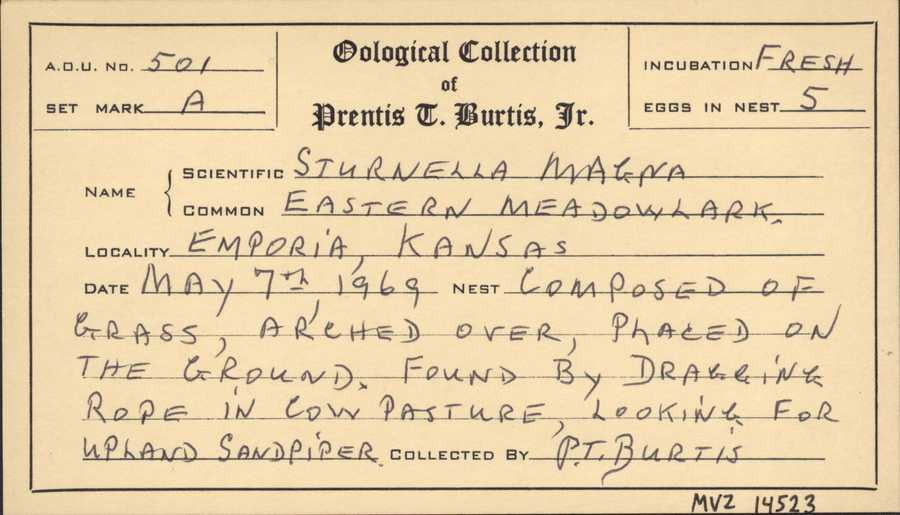 A.O.U. NO. 501
SET MARK A
Oological Collection
of
Prentis T. Burtis, Jr.
INCUBATION FRESH
EGGS IN NEST 5
NAME
SCIENTIFIC STURNELLA MAGNA
COMMON EASTERN MEADOWLARK.
LOCALITY EMPORIA, KANSAS
DATE MAY 7th, 1969 NEST COMPOSED OF
GRASS, ARCHED OVER, PLACED ON
THE GROUND. FOUND BY DRAGGING
ROPE IN COW PASTURE, LOOKING FOR
UPLAND SANDPIPER. COLLECTED BY P.T. BURTIS
MVZ 14523